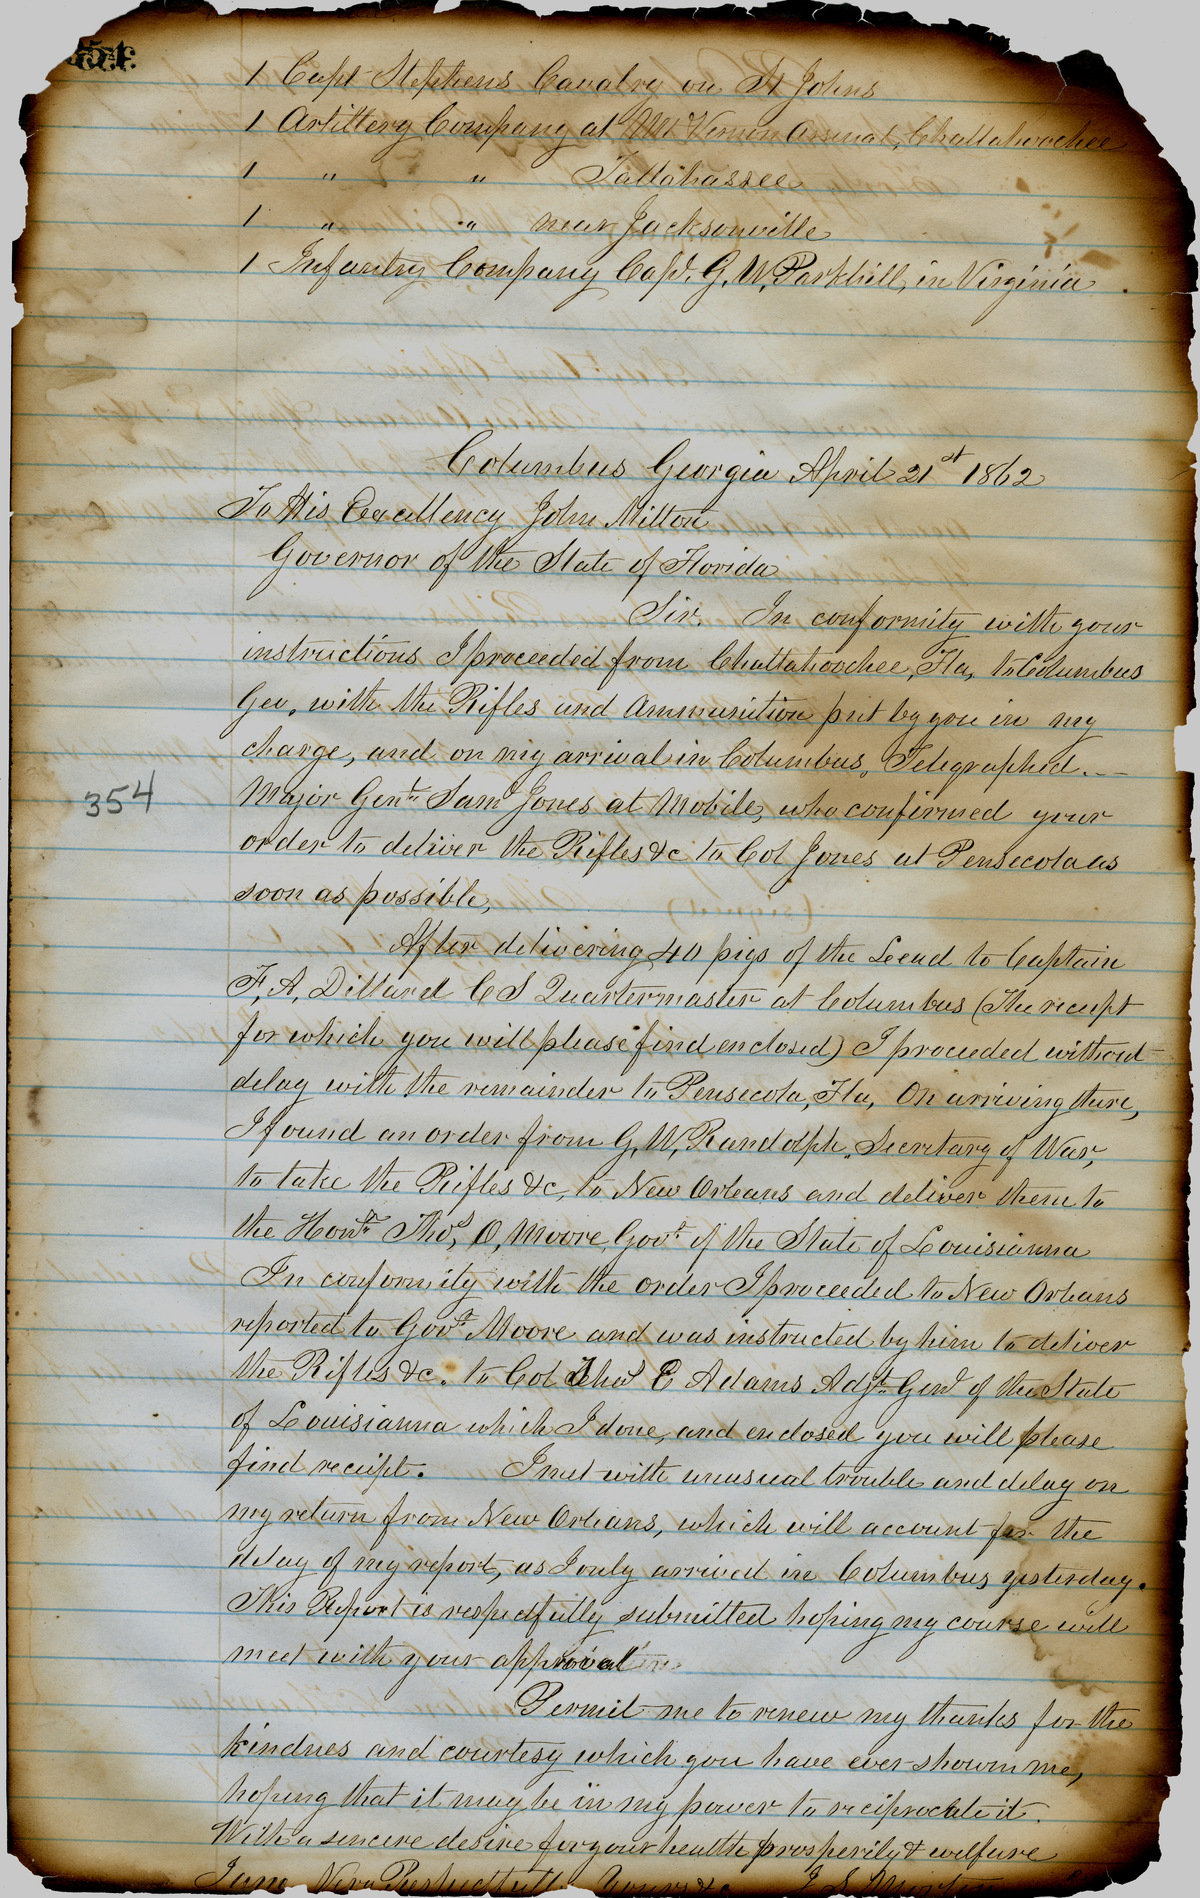 354
1 Capt Stephens Cavalry on St Johns
1 Artillery Company at Mt Vernon Arsenal, Chattahoochee
1 " " Tallahassee
1 " " near Jacksonville
1 Infantry Company Capt. G, W, Parkhill, in Virginia.
Columbus Georgia April 21st 1862
To His Excellency John Milton
Governor of the State of Florida
Sir. In conformity with your
instructions I proceeded from Chattahoochee, Fla, to Columbus
Geo, with the Rifles and Ammunition put by you in my
charge, and on my arrival in Columbus, Telegraphed
Major Genl Saml Jones at Mobile, who confirmed your
354
order to deliver the Rifles &c to Col Jones at Pensecola as
soon as possible,
After delivering 40 pigs of the Lead to Captain
F, A, Dillard C S Quartermaster at Columbus (The receipt
for which you will please find enclosed) I proceeded without
delay with the remainder to Pensecola, Fla, On arriving there,
I found an order from G, W, Randolph, Secretary of War,
to take the Rifles &c, to New Orleans and deliver them to
the Honl Thos, O, Moore, Govr of the State of Louisianna
In conformity with the order I proceeded to New Orleans
reported to Govr Moore and was instructed by him to deliver
the Rifles &c. to Col Thos E Adams Adjt Genl of the State
of Louisianna which I done, and enclosed you will please
find receipt. I met with unusual trouble and delay on
my return from New Orleans, which will account for the
delay of my report, as I only arrived in Columbus yesterday.
This Report is respectfully submitted hoping my course will
meet with your approval
Permit me to renew my thanks for the
kindnes and courtesy which you have ever shown me,
hoping that it may be in my power to reciprocate it.
With a sincere desire for your health prosperity & welfare
I am Very Respectfully Yours &c J S